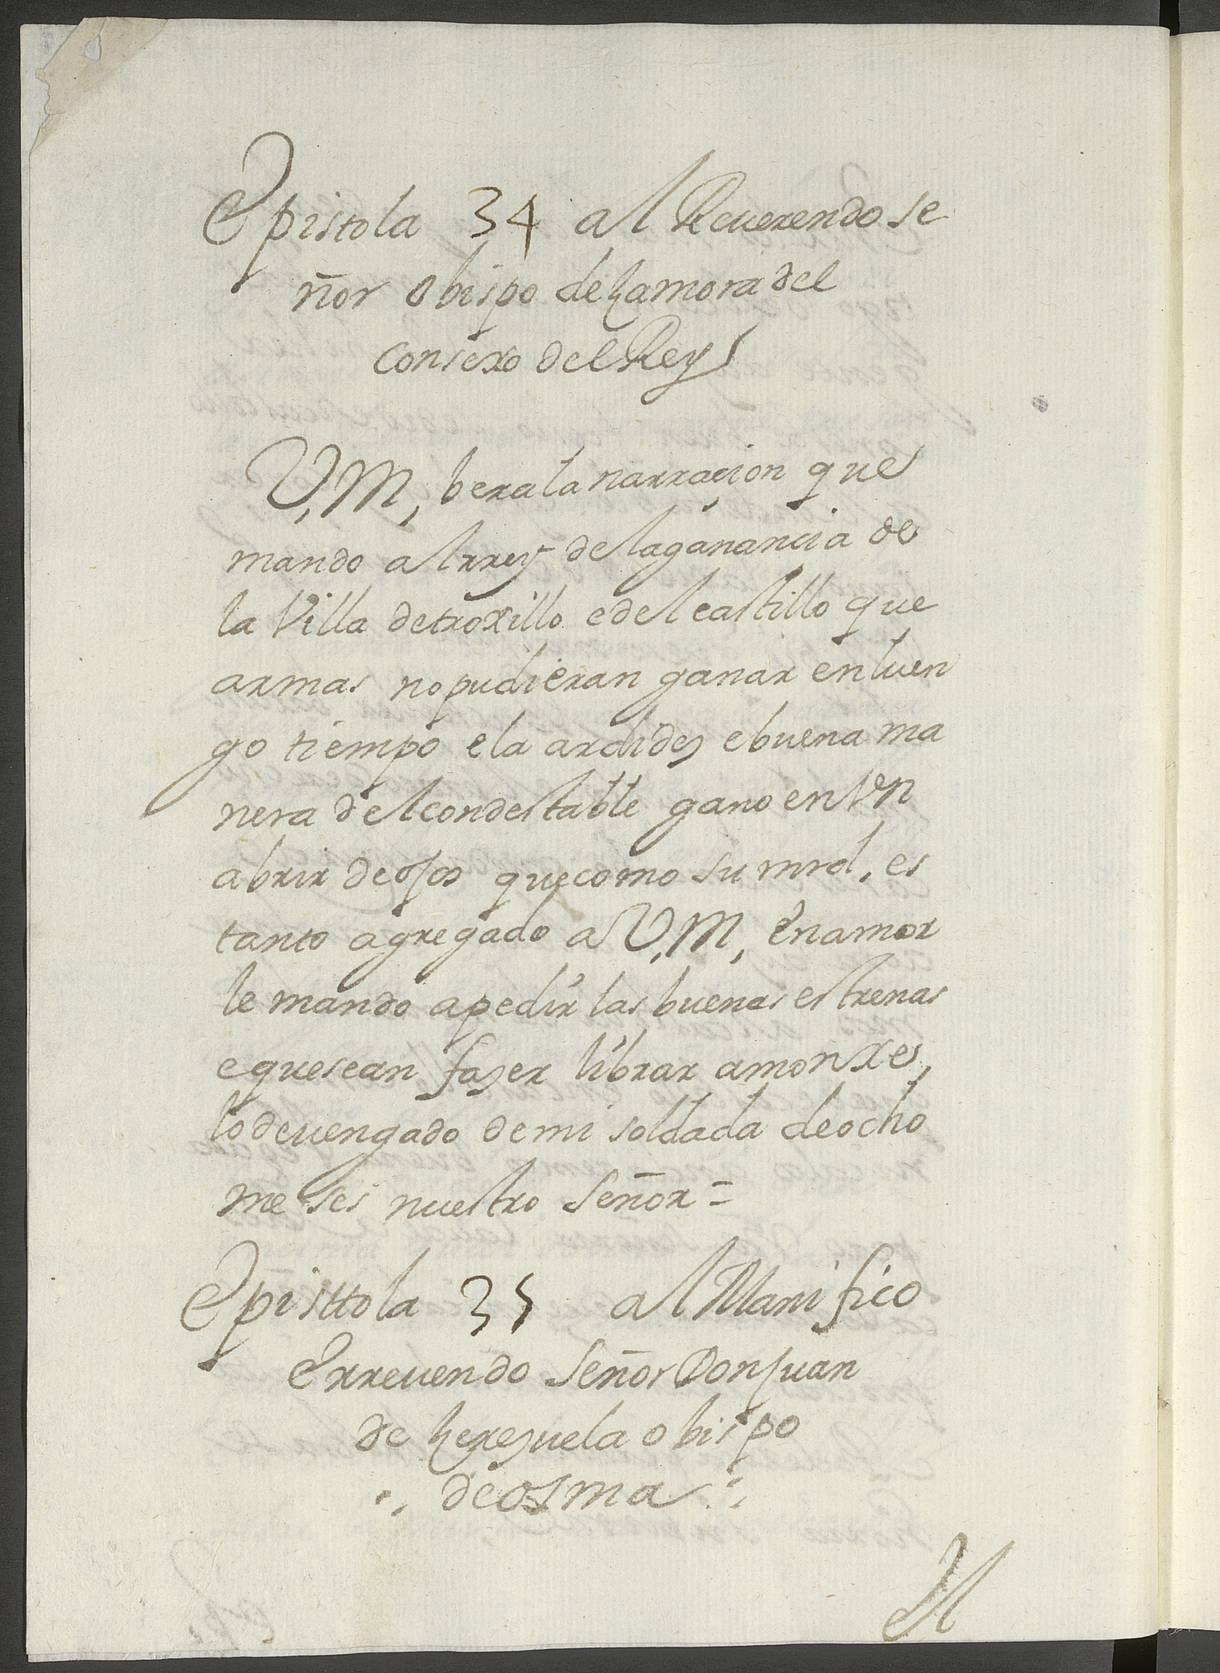 Epistola 34 al Reuerendo se
ñor obispo de Zamora del
consexo del Rey
V, M, bera la narraçion que
mando al rrey de la ganancia de
la Villa de troxillo e del castillo que
armas no pudieran ganar en luen
go tiempo e la ardidez e buena ma
nera del condestable gano en Vn
abrir de ojos que como su mrd, es
tanto agregado a V, M, en amor
le mando a pedir las buenas estrenas
e que sean fazer librar a monxes,
lo deuengado de mi soldada de ocho
meses nuestro Señor =
Episttola 35 al Manifico
Errevendo Señor Don Juan
de Zerezuela obispo
de osma